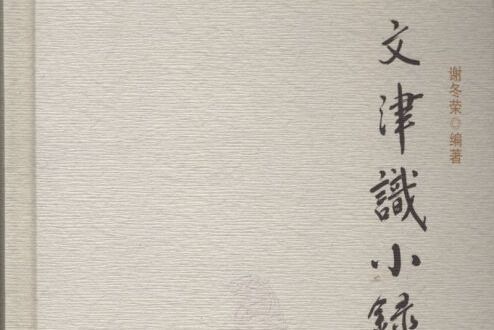 文津識小録
谢冬荣◎编著